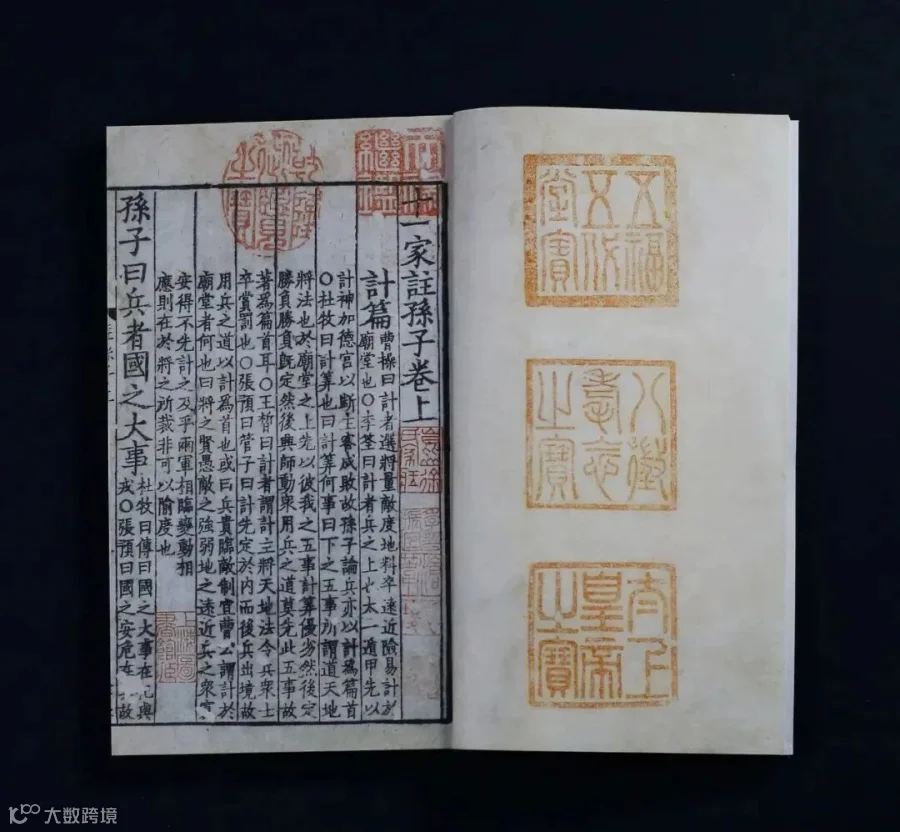 五福五代堂寶
八徵耄念之寶
太上皇帝之寶
天祿繼鑑
乾隆御覽之寶
十一家註孫子卷上
計篇 曹操曰計者選將量敵度地料卒遠近險易計於
廟堂也○李荃曰計者兵之上也太一遁甲先以
計神加德宮以斷主客成敗故孫子論兵亦以計爲篇首
○杜牧曰計筭也曰計筭何事曰下之五事所謂道天地
將法也於廟堂之上先以彼我之五事計筭優劣然後定
勝負勝負旣定然後興師動衆用兵之道莫先此五事故
著爲篇首耳○王晳曰計者謂計主將天地法令兵衆士
卒賞罰也○張預曰管子曰計先定於内而後兵出境故
用兵之道以計爲首也或曰兵貴臨敵制宜曹公謂計於
廟堂者何也曰將之賢愚敵之強弱地之遠近兵之衆
安得不先計之及乎兩軍相臨變動相
應則在於將之所裁非可以隃度也
孫子曰兵者國之大事 杜牧曰傳曰國之大事在祀與
戎○張預曰國之安危在 故
上海圖書館藏
大数跨境